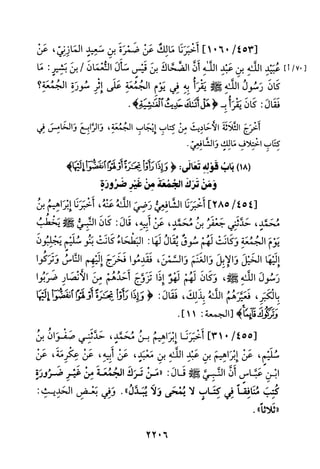 [٤٥٣/ ١٠٦٠] أَخْبَرَنَا مَالِكٌ عَنْ ضَمْرَةَ بنِ سَعِيدٍ المَازِنِيِّ، عَنْ
[١/ ٧٠] عُبَيْدِ اللَّهِ بنِ عَبْدِ اللَّهِ أَنَّ الضَّحَّاكَ بنَ قَيْسٍ سَأَلَ النُّعْمَانَ / بنَ بَشِيرٍ: مَا
كَانَ رَسُولُ اللَّهِ ﷺ يَقْرَأُ بِهِ فِي يَوْمِ الجُمُعَةِ عَلَى إِثْرِ سُورَةِ الجُمُعَةِ؟
فَقَالَ: كَانَ يَقْرَأُ بـ ﴿هَلْ أَتَىٰكَ حَدِيثُ ٱلْغَٰشِيَةِ﴾.
أَخْرَجَ الثَّلَاثَةَ الأَحَادِيثَ مِنْ كِتَابِ إِيْجَابِ الجُمُعَةِ، وَالرَّابِعَ وَالخَامِسَ فِي
كِتَابِ اخْتِلَافِ مَالِكٍ وَالشَّافِعِيِّ.
(١٨) بَابُ قَوْلِهِ تَعَالَى: ﴿وَإِذَا رَأَوْا۟ تِجَٰرَةً أَوْ لَهْوًا ٱنفَضُّوٓا۟ إِلَيْهَا﴾
وَمَنْ تَرَكَ الجُمُعَةَ مِنْ غَيْرِ ضَرُورَةٍ
[٤٥٤/ ٢٨٥] أَخْبَرَنَا الشَّافِعِيُّ رَضِيَ اللَّهُ عَنْهُ، أَخْبَرَنَا إِبْرَاهِيمُ بنُ
مُحَمَّدٍ، حَدَّثَنِي جَعْفَرُ بنُ مُحَمَّدٍ، عَنْ أَبِيهِ، قَالَ: كَانَ النَّبِيُّ ﷺ يَخْطُبُ
يَوْمَ الجُمُعَةِ وَكَانَتْ لَهُمْ سُوقٌ يُقَالُ لَهَا: البَطْحَاءُ كَانَتْ بَنُو سُلَيْمٍ يَجْلِبُونَ
إِلَيْهَا الخَيْلَ وَالإِبِلَ وَالغَنَمَ وَالسَّمْنَ، فَقَدِمُوا فَخَرَجَ إِلَيْهِمُ النَّاسُ وَتَرَكُوا
رَسُولَ اللَّهِ ﷺ، وَكَانَ لَهُمْ لَهْوٌ إِذَا تَزَوَّجَ أَحَدُهُمْ مِنَ الأَنْصَارِ ضَرَبُوا
بِالْكَبَرِ، فَعَيَّرَهُمُ اللَّهُ بِذَلِكَ، فَقَالَ: ﴿وَإِذَا رَأَوْا۟ تِجَٰرَةً أَوْ لَهْوًا ٱنفَضُّوٓا۟ إِلَيْهَا
وَتَرَكُوكَ قَآئِمًا﴾ [الجمعة: ١١].
[٤٥٥/ ٣١٠] أَخْبَرَنَا إِبْرَاهِيمُ بنُ مُحَمَّدٍ، حَدَّثَنِي صَفْوَانُ بنُ
سُلَيْمٍ، عَنْ إِبْرَاهِيمَ بنِ عَبْدِ اللَّهِ بنِ مَعْبَدٍ، عَنْ أَبِيهِ، عَنْ عِكْرِمَةَ، عَنْ
ابْنِ عَبَّاسٍ أَنَّ النَّبِيَّ ﷺ قَالَ: «مَنْ تَرَكَ الجُمُعَةَ مِنْ غَيْرِ ضَرُورَةٍ
كُتِبَ مُنَافِقًا فِي كِتَابٍ لَا يُمْحَى وَلَا يُبَدَّلُ». وَفِي بَعْضِ الحَدِيثِ:
«ثَلَاثًا».
٢٢٠٦